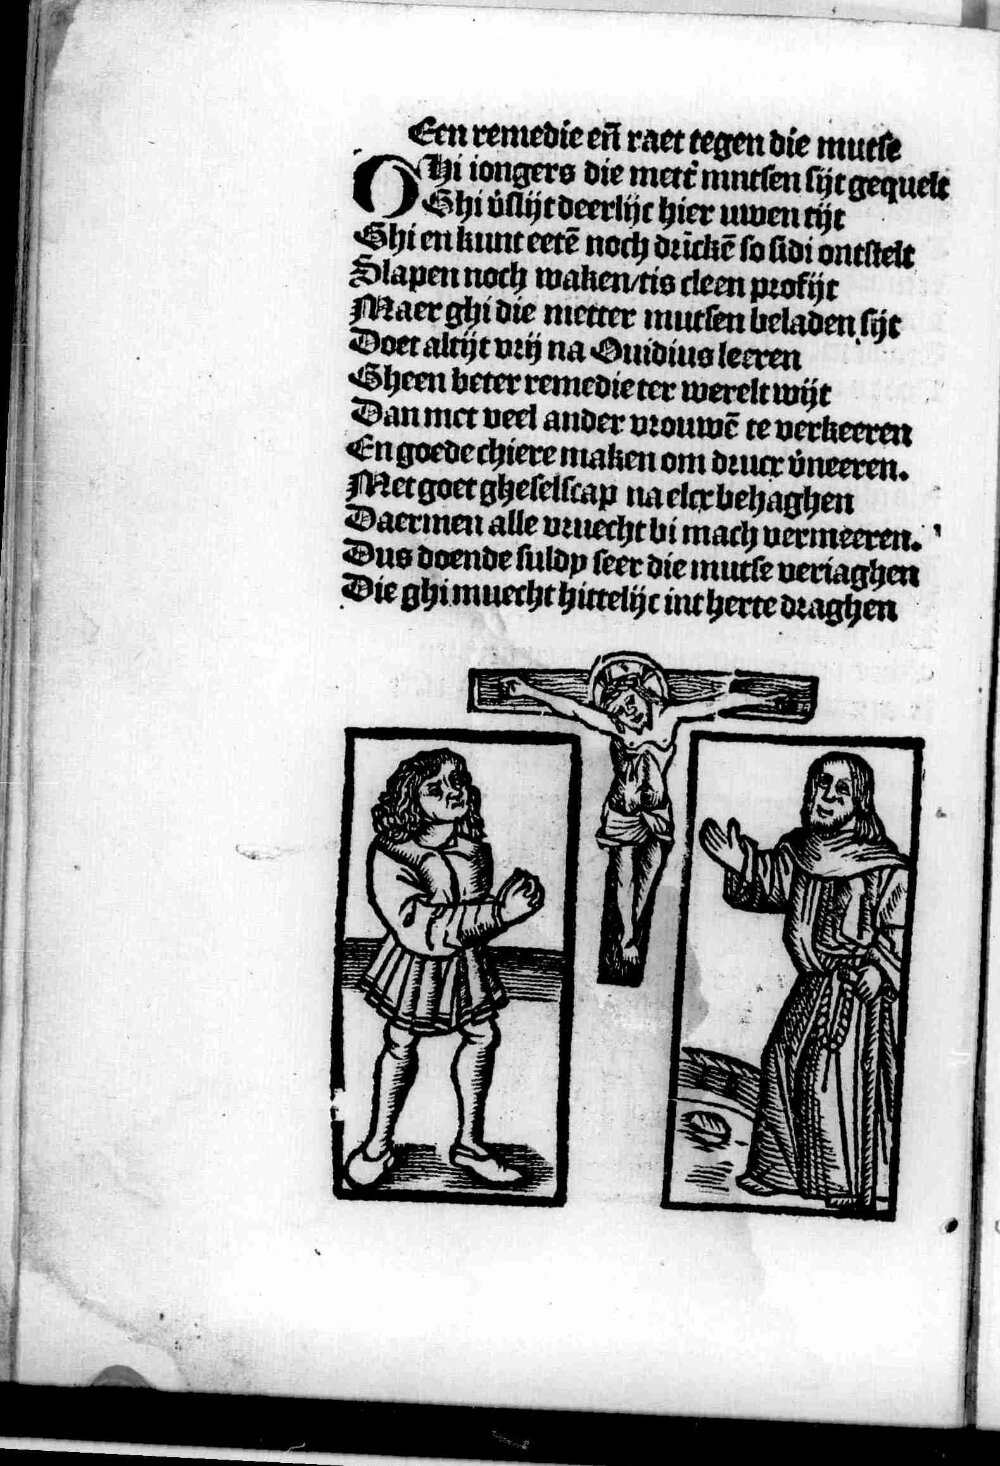 Een remedie eñ raet tegen die mutse
OHi iongers die mett̃ mutsen sijt gequelt
Ghi v̓slijt deerlijc hier uwen tijt
Ghi en kunt eetē noch drīckē so sidi ontstelt
Slapen noch waken/tis cleen profijt
Maer ghi die metter mutsen beladen sijt
Doet altijt vrij na Ouidius leeren
Gheen beter remedie ter werelt wijt
Dan met veel ander vrouwē te verkeeren
En goede chiere maken om druct v̓neeren.
Met goet gheselscap na elcx behaghen
Daermen alle vruecht bi mach vermeeren.
Dus doende suldy seer die mutse veriaghen
Die ghi muecht hittelijc int herte draghen